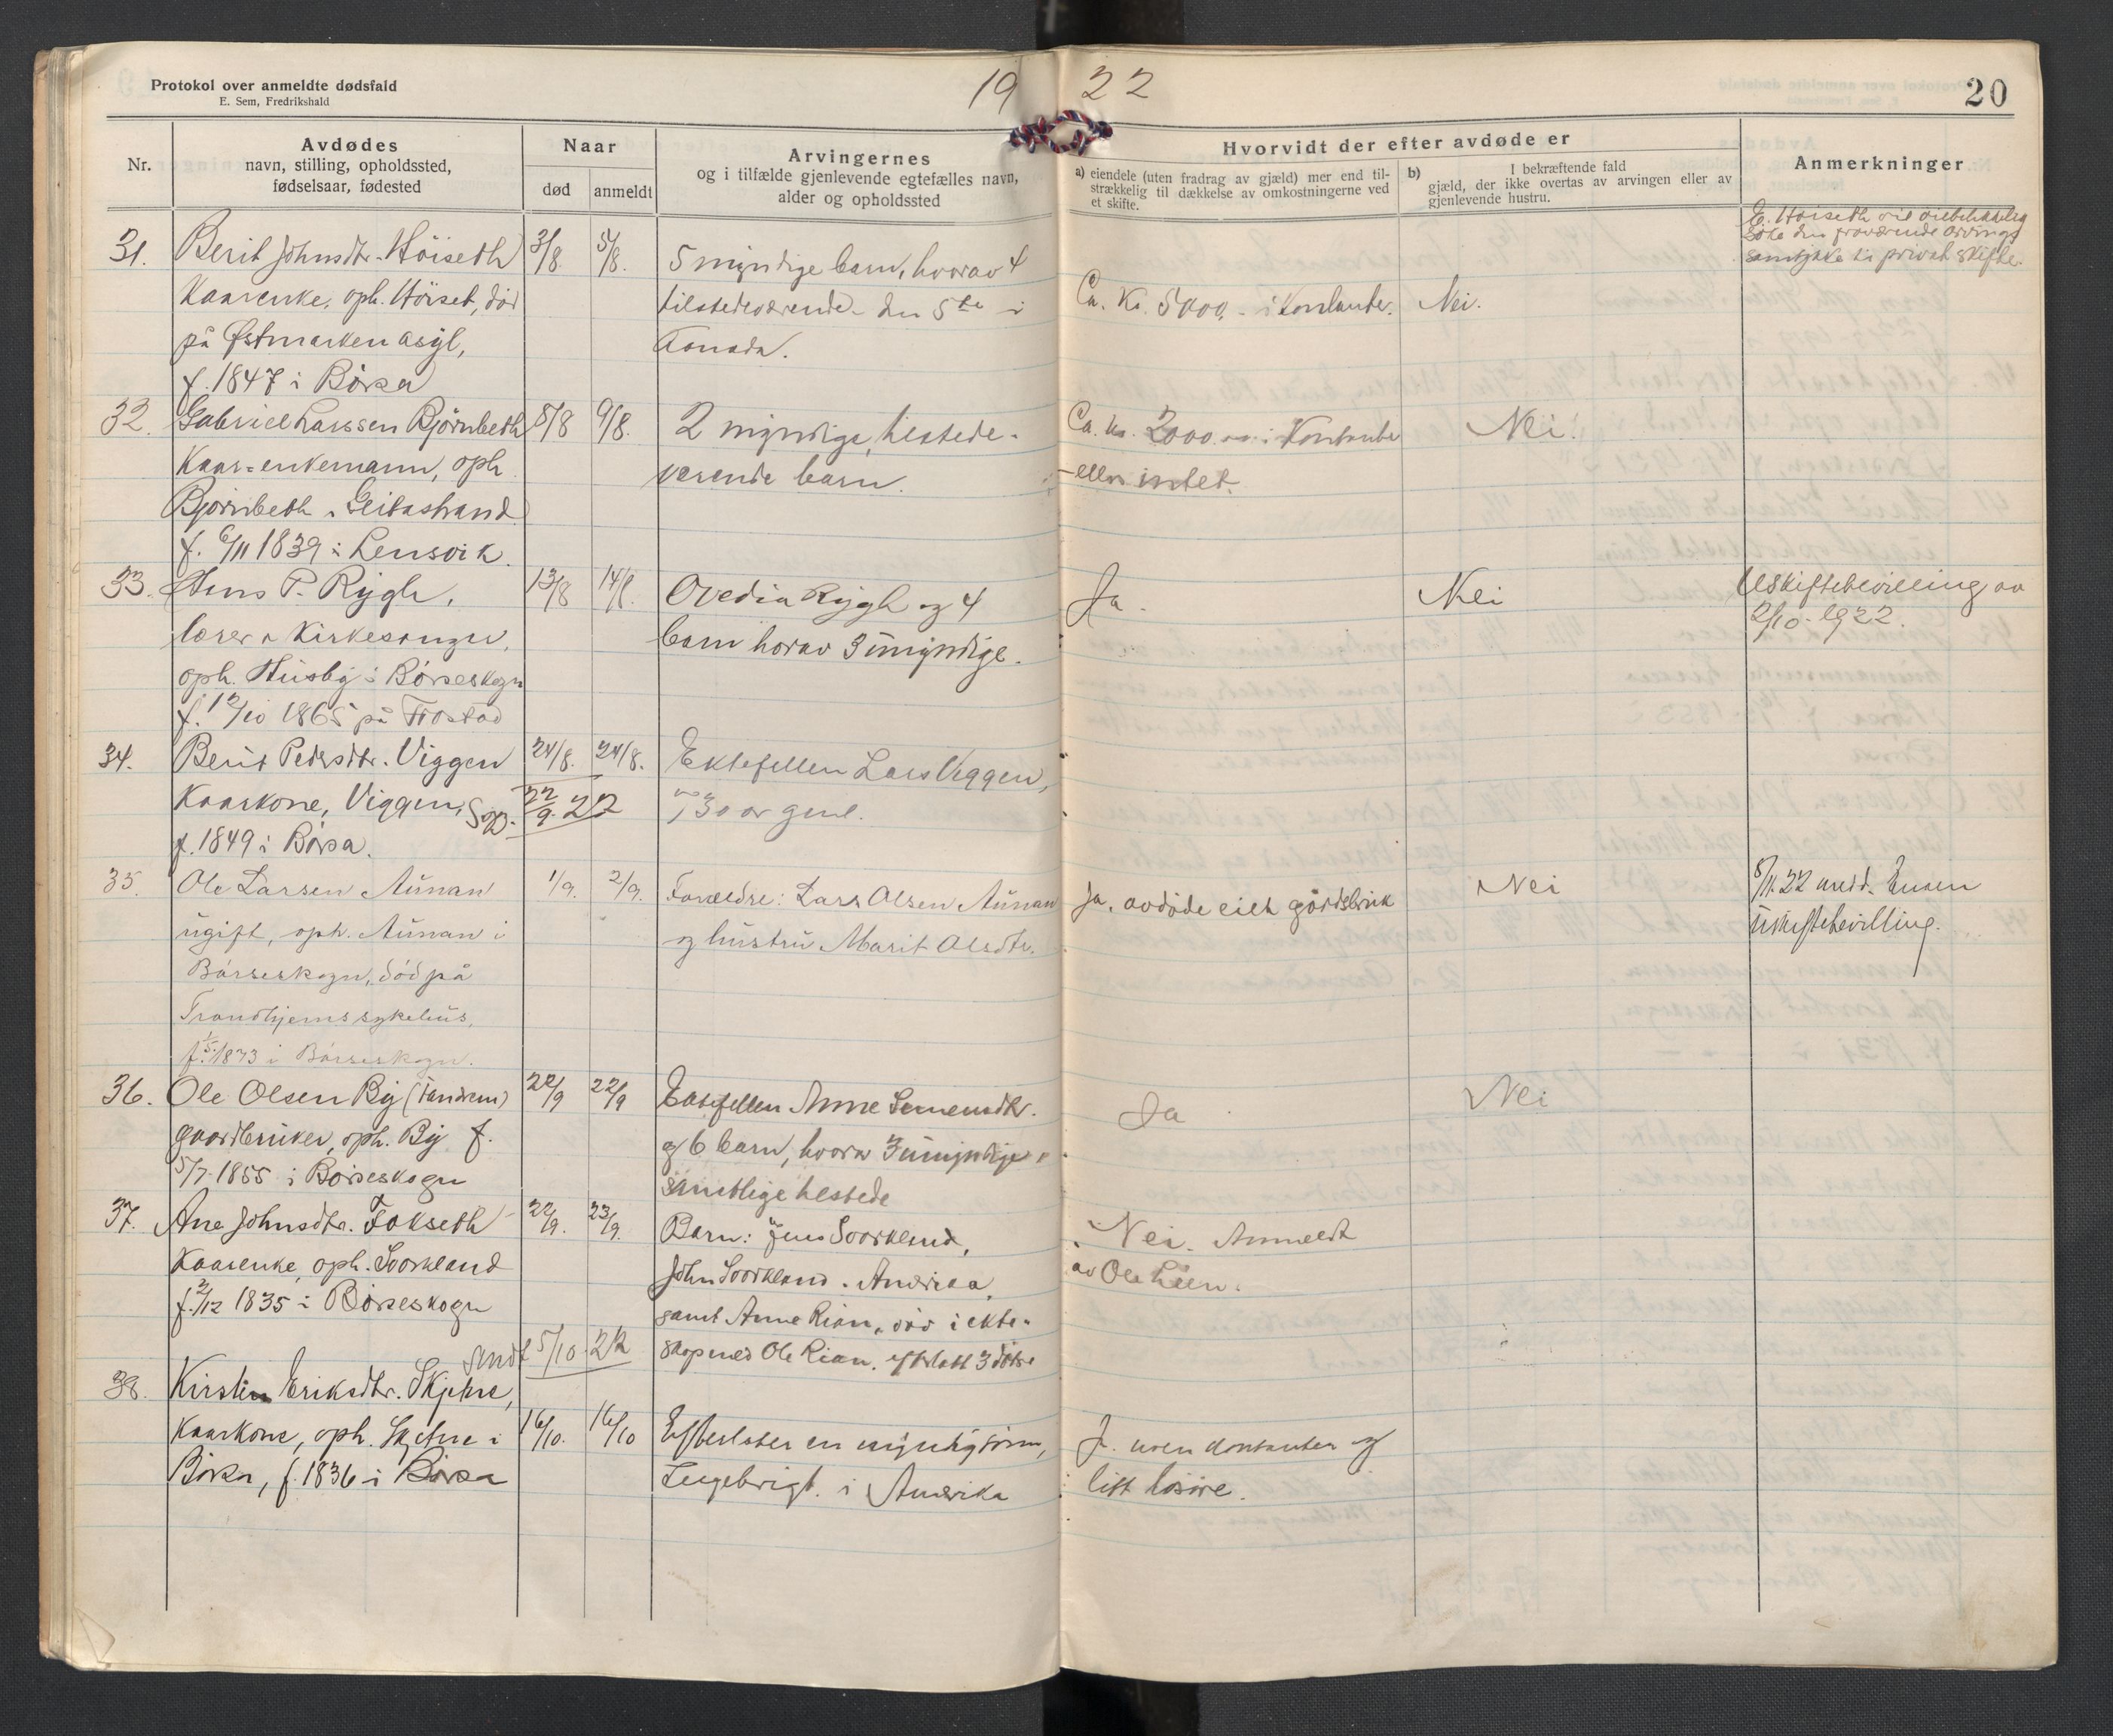 Protokol over anmeldte dødsfald
E. Sem, Fredrikshald
19 22
20
Nr.
Avdødes
navn, stilling, opholdssted,
fødselsaar, fødested
Naar
død
anmeldt
Arvingernes
og i tilfælde gjenlevende egtefælles navn,
alder og opholdssted
Hvorvidt der efter avdøde er
a) eiendele (uten fradrag av gjæld) mer end til-
strækkelig til dækkelse av omkostningerne ved
et skifte.
b) I bekræftende fald
gjæld, der ikke overtas av arvingen eller av
gjenlevende hustru.
Anmerkninger
31. Berit Johnsdtr. Höiseth
Kaarenke, oph. Höiset, död
på Østmarken asyl,
f. 1847 i Börsa
3/8 5/8.
5 myndige barn, hvorav 4
tilstedeværende - den 5te i
Kanada.
Ca. Kr. 5000,- i Kontanter.
Nei.
E. Höiseth vil
söke den fraværende arvings
samtykke til privat skifte.
32. Gabriel Larssen Björnbeth
Kaar-enkemann, oph.
Björnbeth, Geitastrand
f. 6/11 1839 i Lensvik.
8/8 9/8.
2 myndige, tilstede-
værende barn.
Ca. kr. 2000.00 i Kontanter
- ellers intet.
Nei.
33. Hens P. Rygh,
lærer o Kirkesanger,
oph. Husby i Börseskogn
f. 12/10 1865 på Frostad
13/8 14/8.
Ovedia Rygh og 4
barn horav 3 umyndige.
Ja.
Nei
Uskiftebevilling av
2/10-1922.
34. Berit Pedersdtr. Viggen
Kaarkone, Viggen,
f. 1849 i Börsa.
24/8. 24/8.
22/9. 22
Ektefellen Lars Viggen,
73 år gml.
35. Ole Larsen Aunan
ugift, oph. Aunan i
Börseskogn, död på
Trondhjems sykehus,
f. 1873 i Börseskogn.
1/9. 2/9.
Forældre: Lars Olsen Aunan
og hustru Marit Olsdtr.
Ja, avdöde eiet gårdsbruk
Nei
8/11. 22 medd. Enken
uskiftebevilling.
36. Ole Olsen By (Tandrem)
gaardbruker, oph. By f.
5/7-1855 i Börseskogn
22/9 22/9
Ektefellen Anne
og 6 barn, hvorav 3 umyndige,
samtlige tilstede
Ja
Nei
37. Ane Johnsdtr. Fokseth
Kaarenke, oph. Soorkland
f. 2/12 1835 i Börseskogn
22/9. 23/9.
Barn: Jens Soorkland,
John Soorkland i Amerika,
samt Anne Rian, död i ekte-
skap med Ole Rian, efterlatt 3 dötre
Nei. Anmeldt
av Ole Lien.
Sendt 5/10-22
38. Kirstin Eriksdtr. Skjetne,
Kaarkone, oph. Skjetne i
Börsa, f. 1836 i Börsa
16/10. 16/10
Efterlater en myndig sönn,
Ingebrigt i Amerika
Ja. noen kontanter og
litt lösöre.